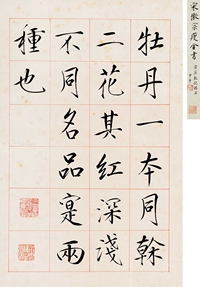 牡丹一本同榦
二花其紅深淺
不同名品寔兩
種也
宋徽宗瘦金書